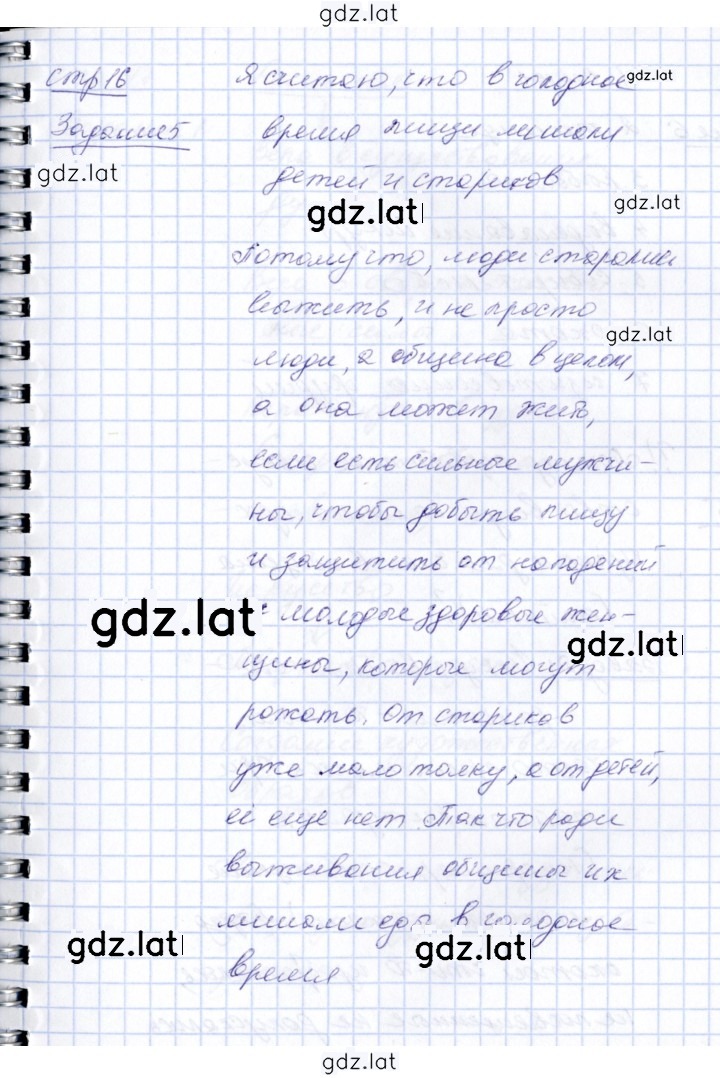 gdz.lat
стр 16
Я считаю, что в голодное
gdz.lat
Задание 5
время пищи лишали
gdz.lat
детей и стариков
gdz.lat
gdz.lat
Потому что, люди старались
выжить, и не просто
gdz.lat
люди, а община в целом,
а она может жить,
если есть сильные мужчи-
ны, чтобы добыть пищу
и защитить от нападений
gdz.lat
молодые здоровые жен-
gdz.lat
щины, которые могут
рожать. От стариков
уже мало толку, а от детей,
её еще нет. Так что ради
выживания общины их
лишали еды в голодное
gdz.lat
gdz.lat
время
gdz.lat